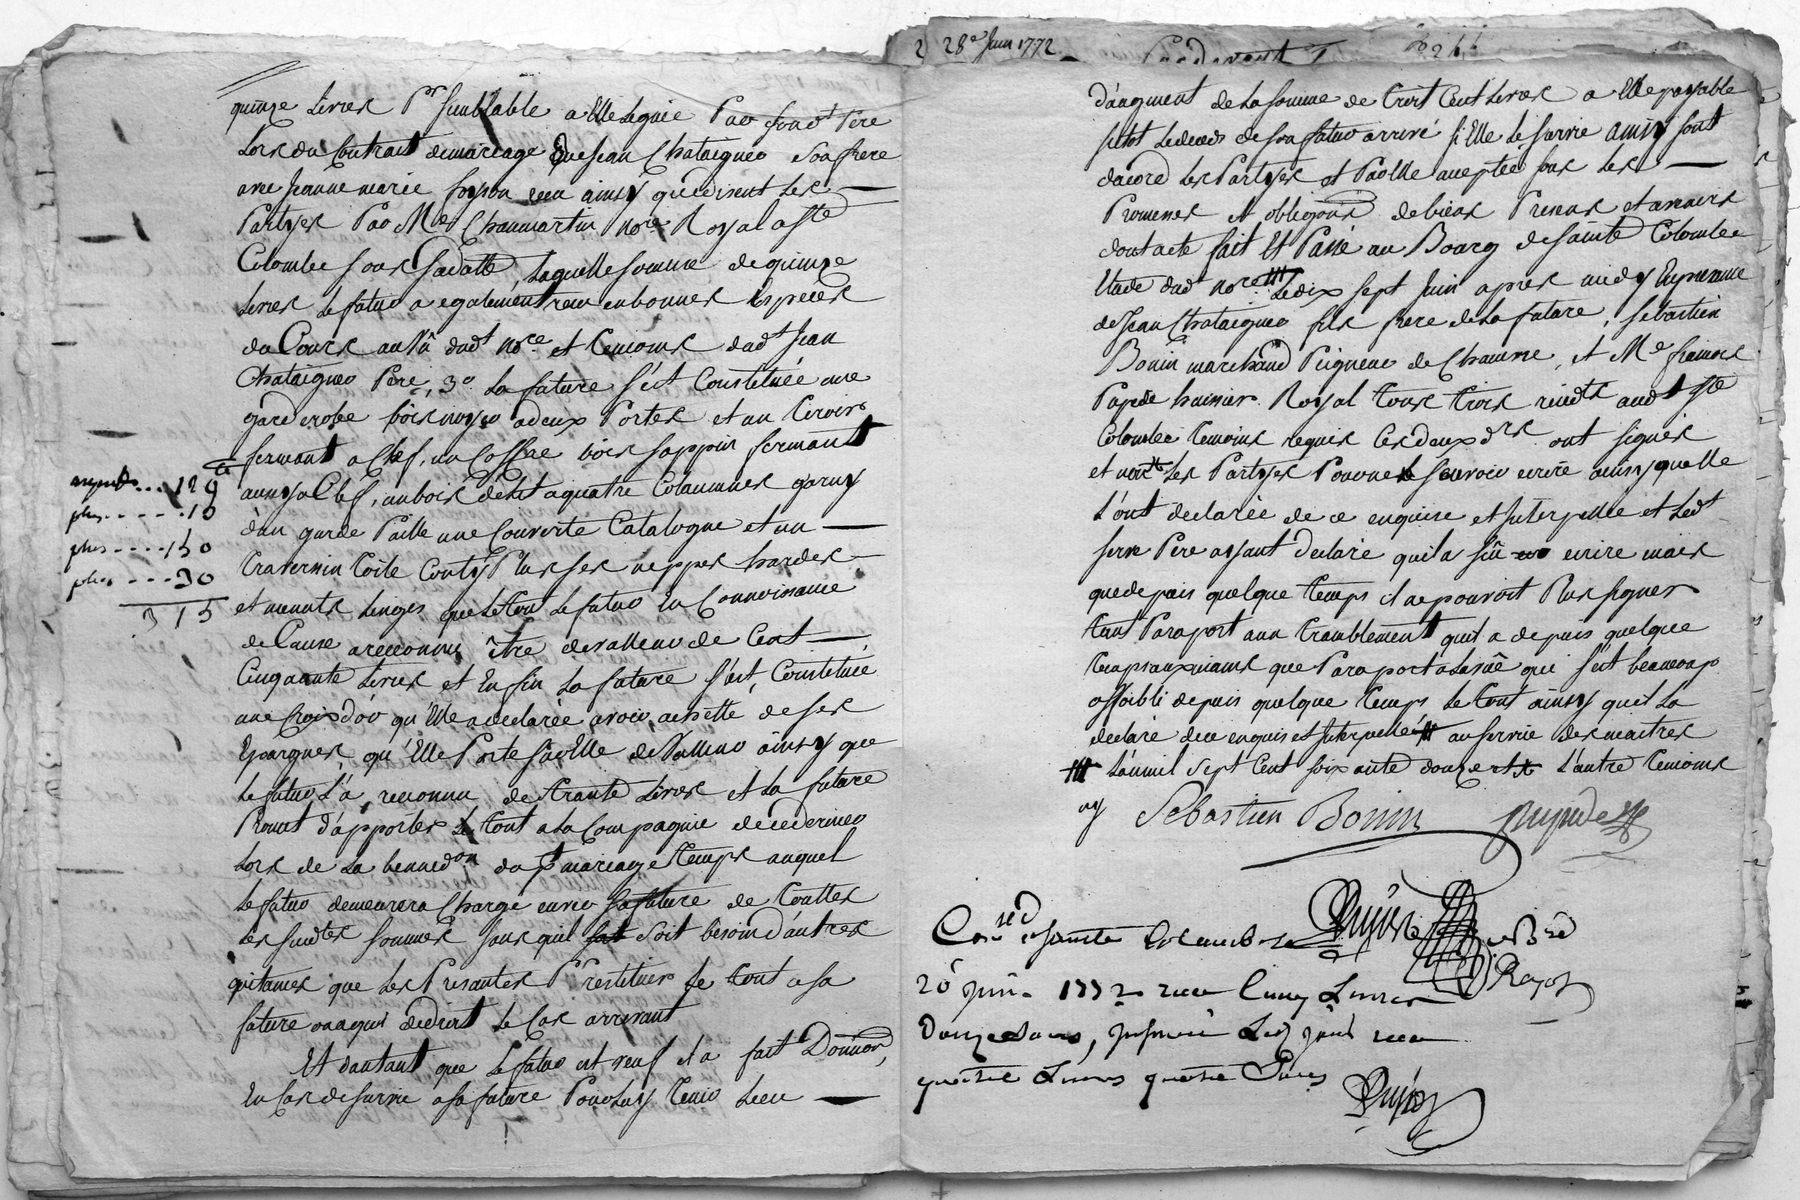 quinze Livres Pr semblable a Elle Leguée Par son dt Pere
Lors du Contrait de mariage Que Jean Chataigner Son frere
avec Jeanne marie recu ainsy qu'edisent Les
Partyes Par Me Chaumartin nore Royal a Ste
Colombe sous Laquelle somme de quinze
Livres Le futur a egalement recu en bonnes Especes
du Cours au vû dudt nore et temoins dudt Jean
Chataigner Pere, 3o. La future s'est Constituée une
garderobe bois noyer a deux Portes et un tiroir
fermant a Clef, un Coffre bois sappin fermant
aussy a Clef, un bois de Lit a quatre Colaumnes garny
d'un garde Paille une Couverte Catalogne et un
traversin toile Plus ses nippes hardes
et menuts Linges que Le tout Le futur En Connoissance
de Cause a reconnu être de valleur de Cent
Cinquante Livres et Enfin La future s'est Constituée
une Croix d'or qu'Elle a declarée avoir achetté de ses
Epargnes, qu'Elle Porte sur Elle de Valleur ainsy que
Le futur L'a reconnu de trante Livres et La future
Promet d'apporter Le tout a La Compagnie de ce dernier
Lors de La benedon du pt mariage temps auquel
Le futur demeurera Chargé envers sa future de touttes
Les susdtes sommes sans quil soit besoin d'autres
quitances que Les Presantes Pr restituer Le tout a sa
future ou a qui de droit Le Cas arrivant
Et d'autant que Le futur est veuf il a fait Donnaon,
En Cas de survie a sa future Pour Luy tenir Lieu
129
plus .....10
plus ....150
plus ...30
315
2 28e Juin 1772
d'augment de La somme de trois Cent Livres a Elle payable
sitot Le deces de son futur arrivé si Elle Le survie ainsy sont
d'acord Les Partyes et Par Elle acceptée sous Les
Promesses et obligaons de biens Presens et avenirs
dont acte fait Et Passé au Bourg de sainte Colombe
Etude dudt nore Le dix sept Juin apres midy En presence
de Jean Chataigner fils frere de La future, Sebastien
Bonin marchand Peigneur de Chanvre, et Me francois
huissier Royal tous trois residts audt Ste
Colombe temoins requis Les deux drs ont signés
et non Les Partyes Pour ne Scavoir ecrire ainsy quelle
L'ont declarée de ce enquise et Interpellée et Ledt
Pere ayant declaré quil a sçû ecrire mais
que depuis quelque temps il ne pouvoit Plus signer
tant Par aport aux tramblement quil a depuis quelque
temps aux mains que Par aport a La vuë qui s'est beaucoup
affoibli depuis quelque temps Le tout ainsy quil La
declaré de ce enquis et Interpellé au service des maitres
L'an mil sept Cent soixante douze et L'autre temoins
Sebastien Bonin
Conlé a sainte Colombe
20 juin 1772 recu Cinq Livres
Douze sous, Led recu
quatre Livres quatre sous